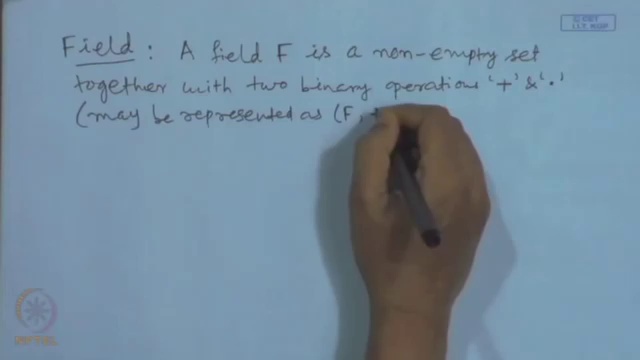 Field : A field F is a non-empty set
together with two binary operations '+' & '.'
(may be represented as (F, +
NPTEL